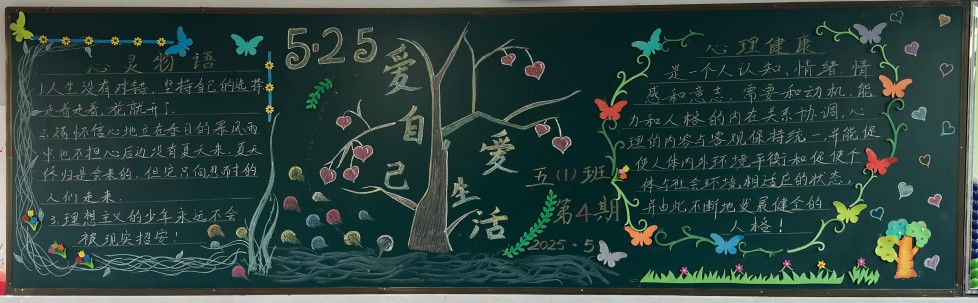 心灵物语
1.人生没有对错,坚持自己的选择
走着走着,花就开了.
2.满怀信心地立在春日的暴风雨
中,也不担心后边没有夏天来,夏天
终归是会来的,但它只向忍耐的
人们走来.
3.理想主义的少年永远不会
被现实招安!
5·25
爱自己
爱生活
五(1)班
第4期
2025·5
心理健康
是一个人认知,情绪,情
感和意志,需要和动机,能
力和人格的内在关系协调,心
理的内容与客观保持统一,并能促
使人体内外环境平衡和促使个
体与社会环境相适应的状态,
并由此不断地发展健全的
人格!